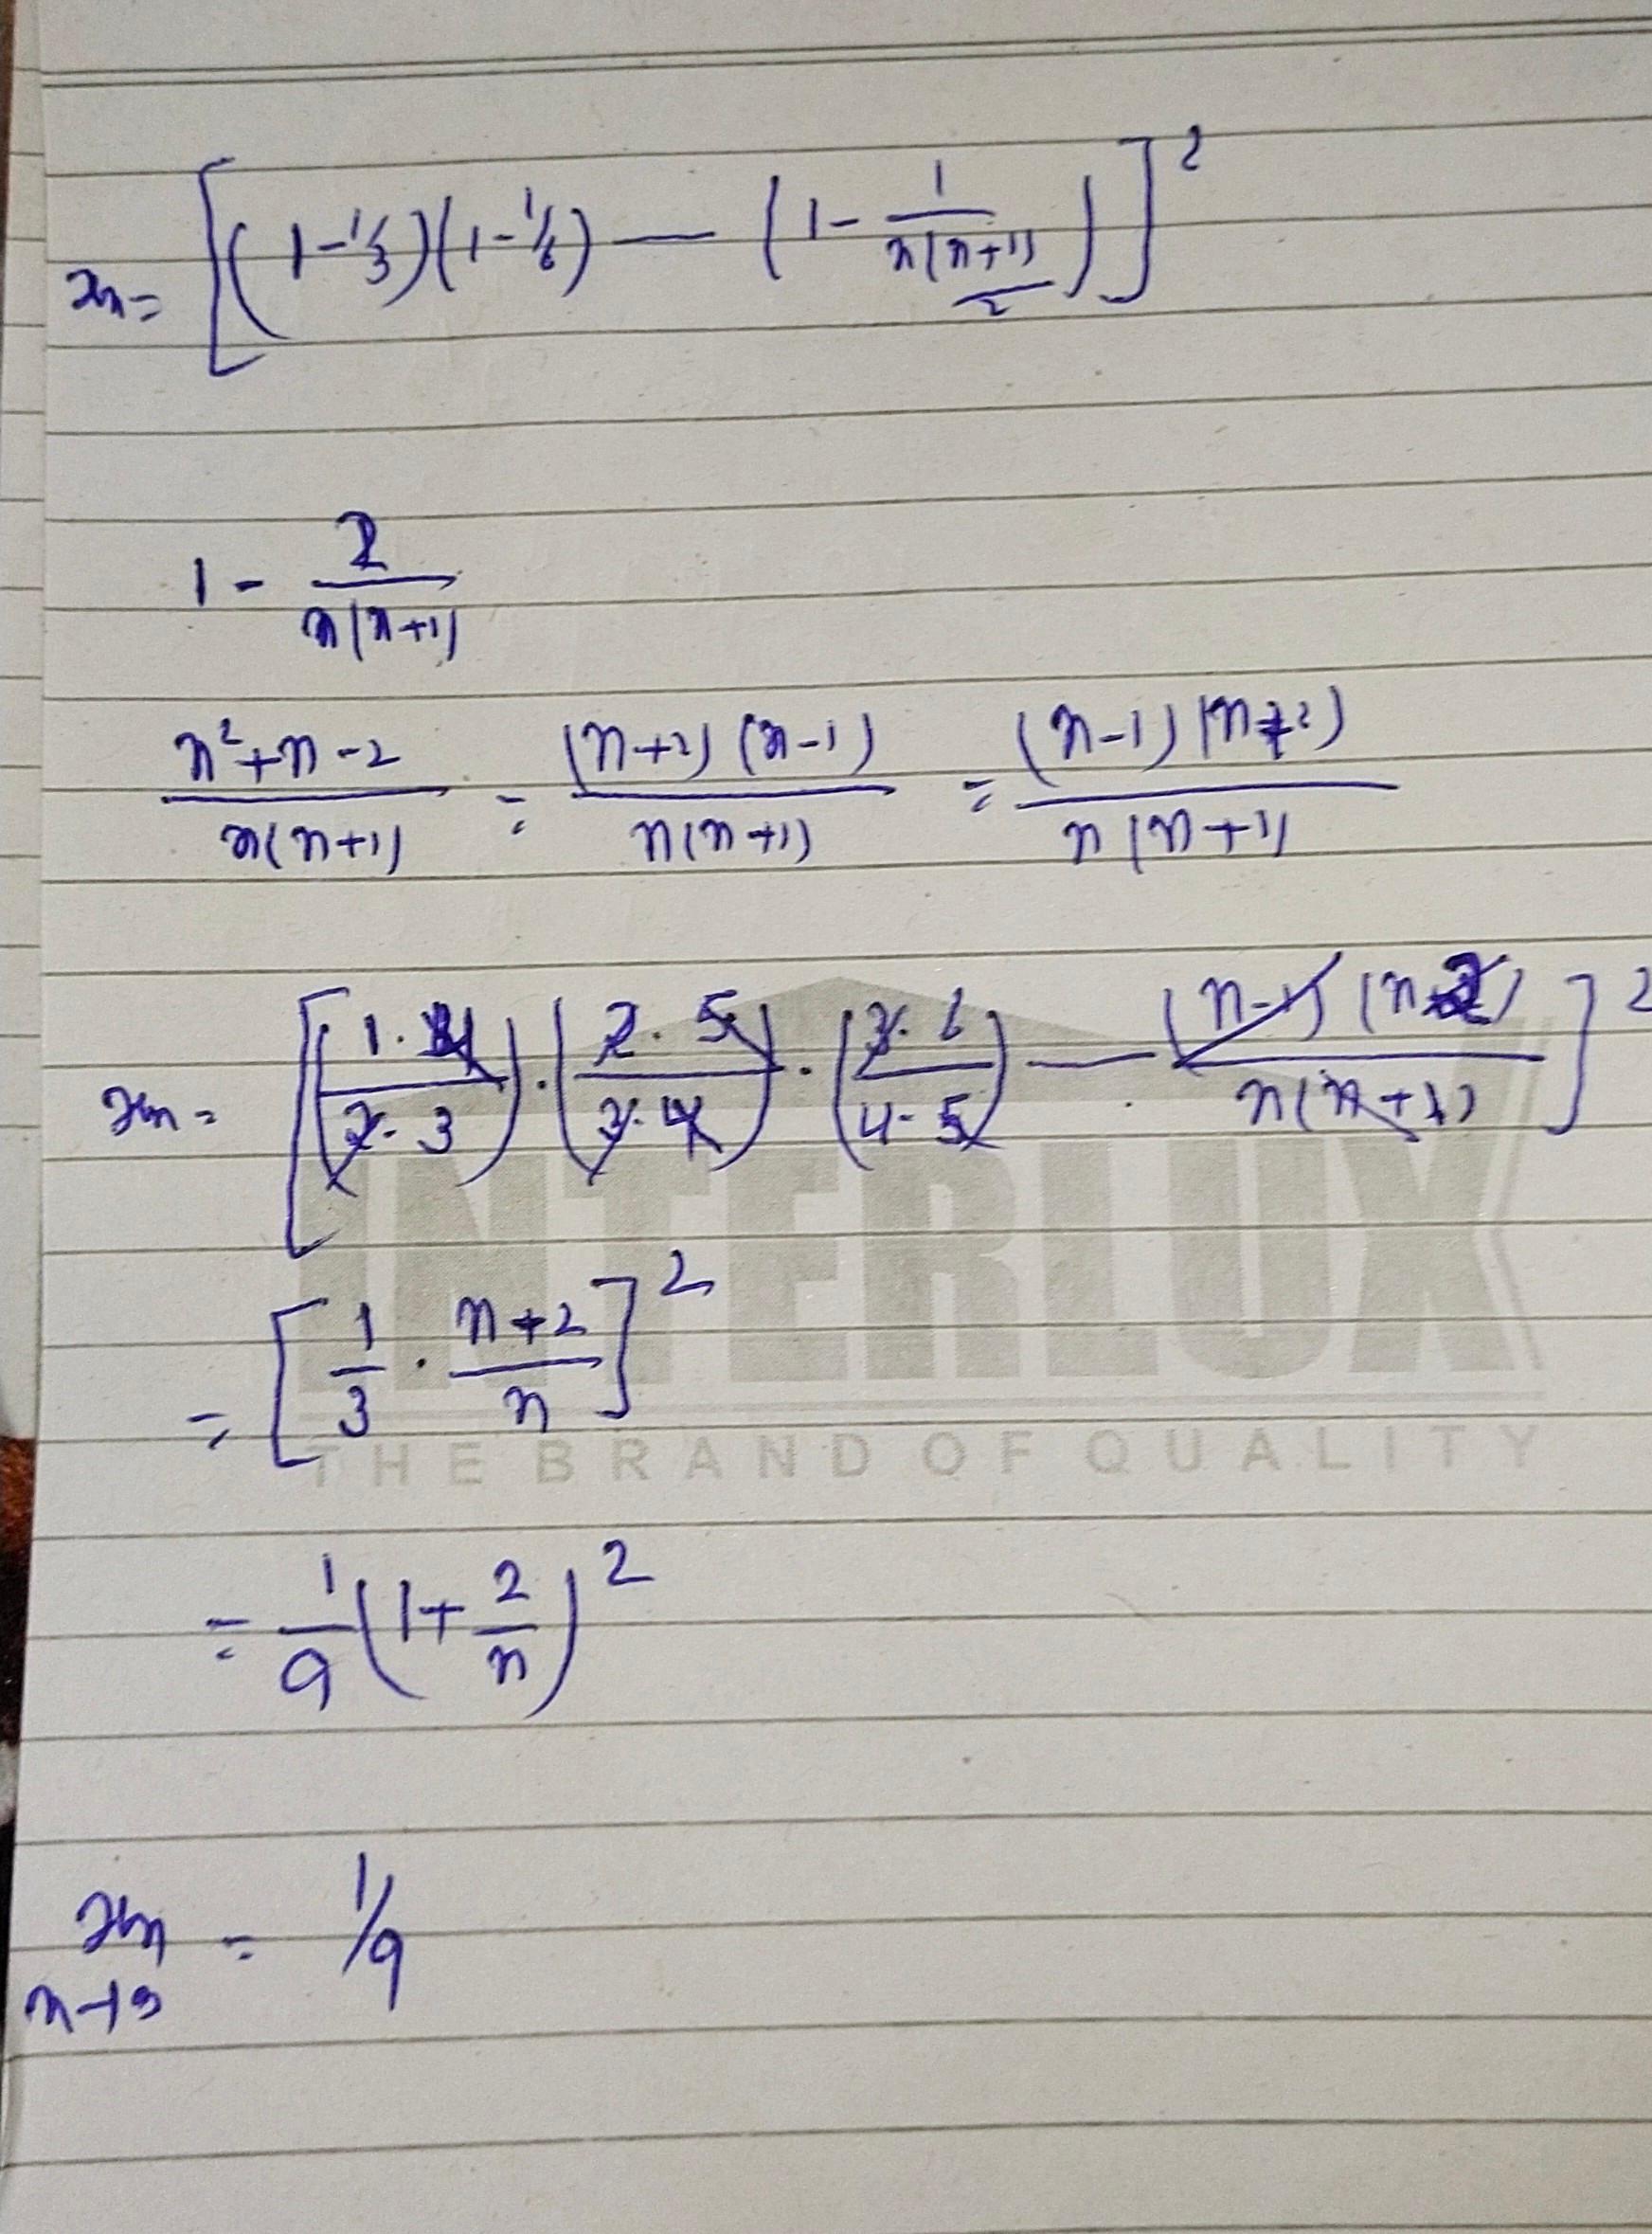 xn = [(1-1/3)(1-1/6) — (1 - 1/(n(n+1)/2))]²
1 - 2/n(n+1)
n²+n-2 / n(n+1) = (n+2)(n-1) / n(n+1) = (n-1)(n+2) / n(n+1)
xn = [(1·4 / 2·3)·(2·5 / 3·4)·(3·6 / 4·5) — (n-1)(n+2) / n(n+1)]²
INTERLUX
= [1/3 · n+2/n]²
THE BRAND OF QUALITY
= 1/9 (1+ 2/n)²
xn = 1/9
n→∞